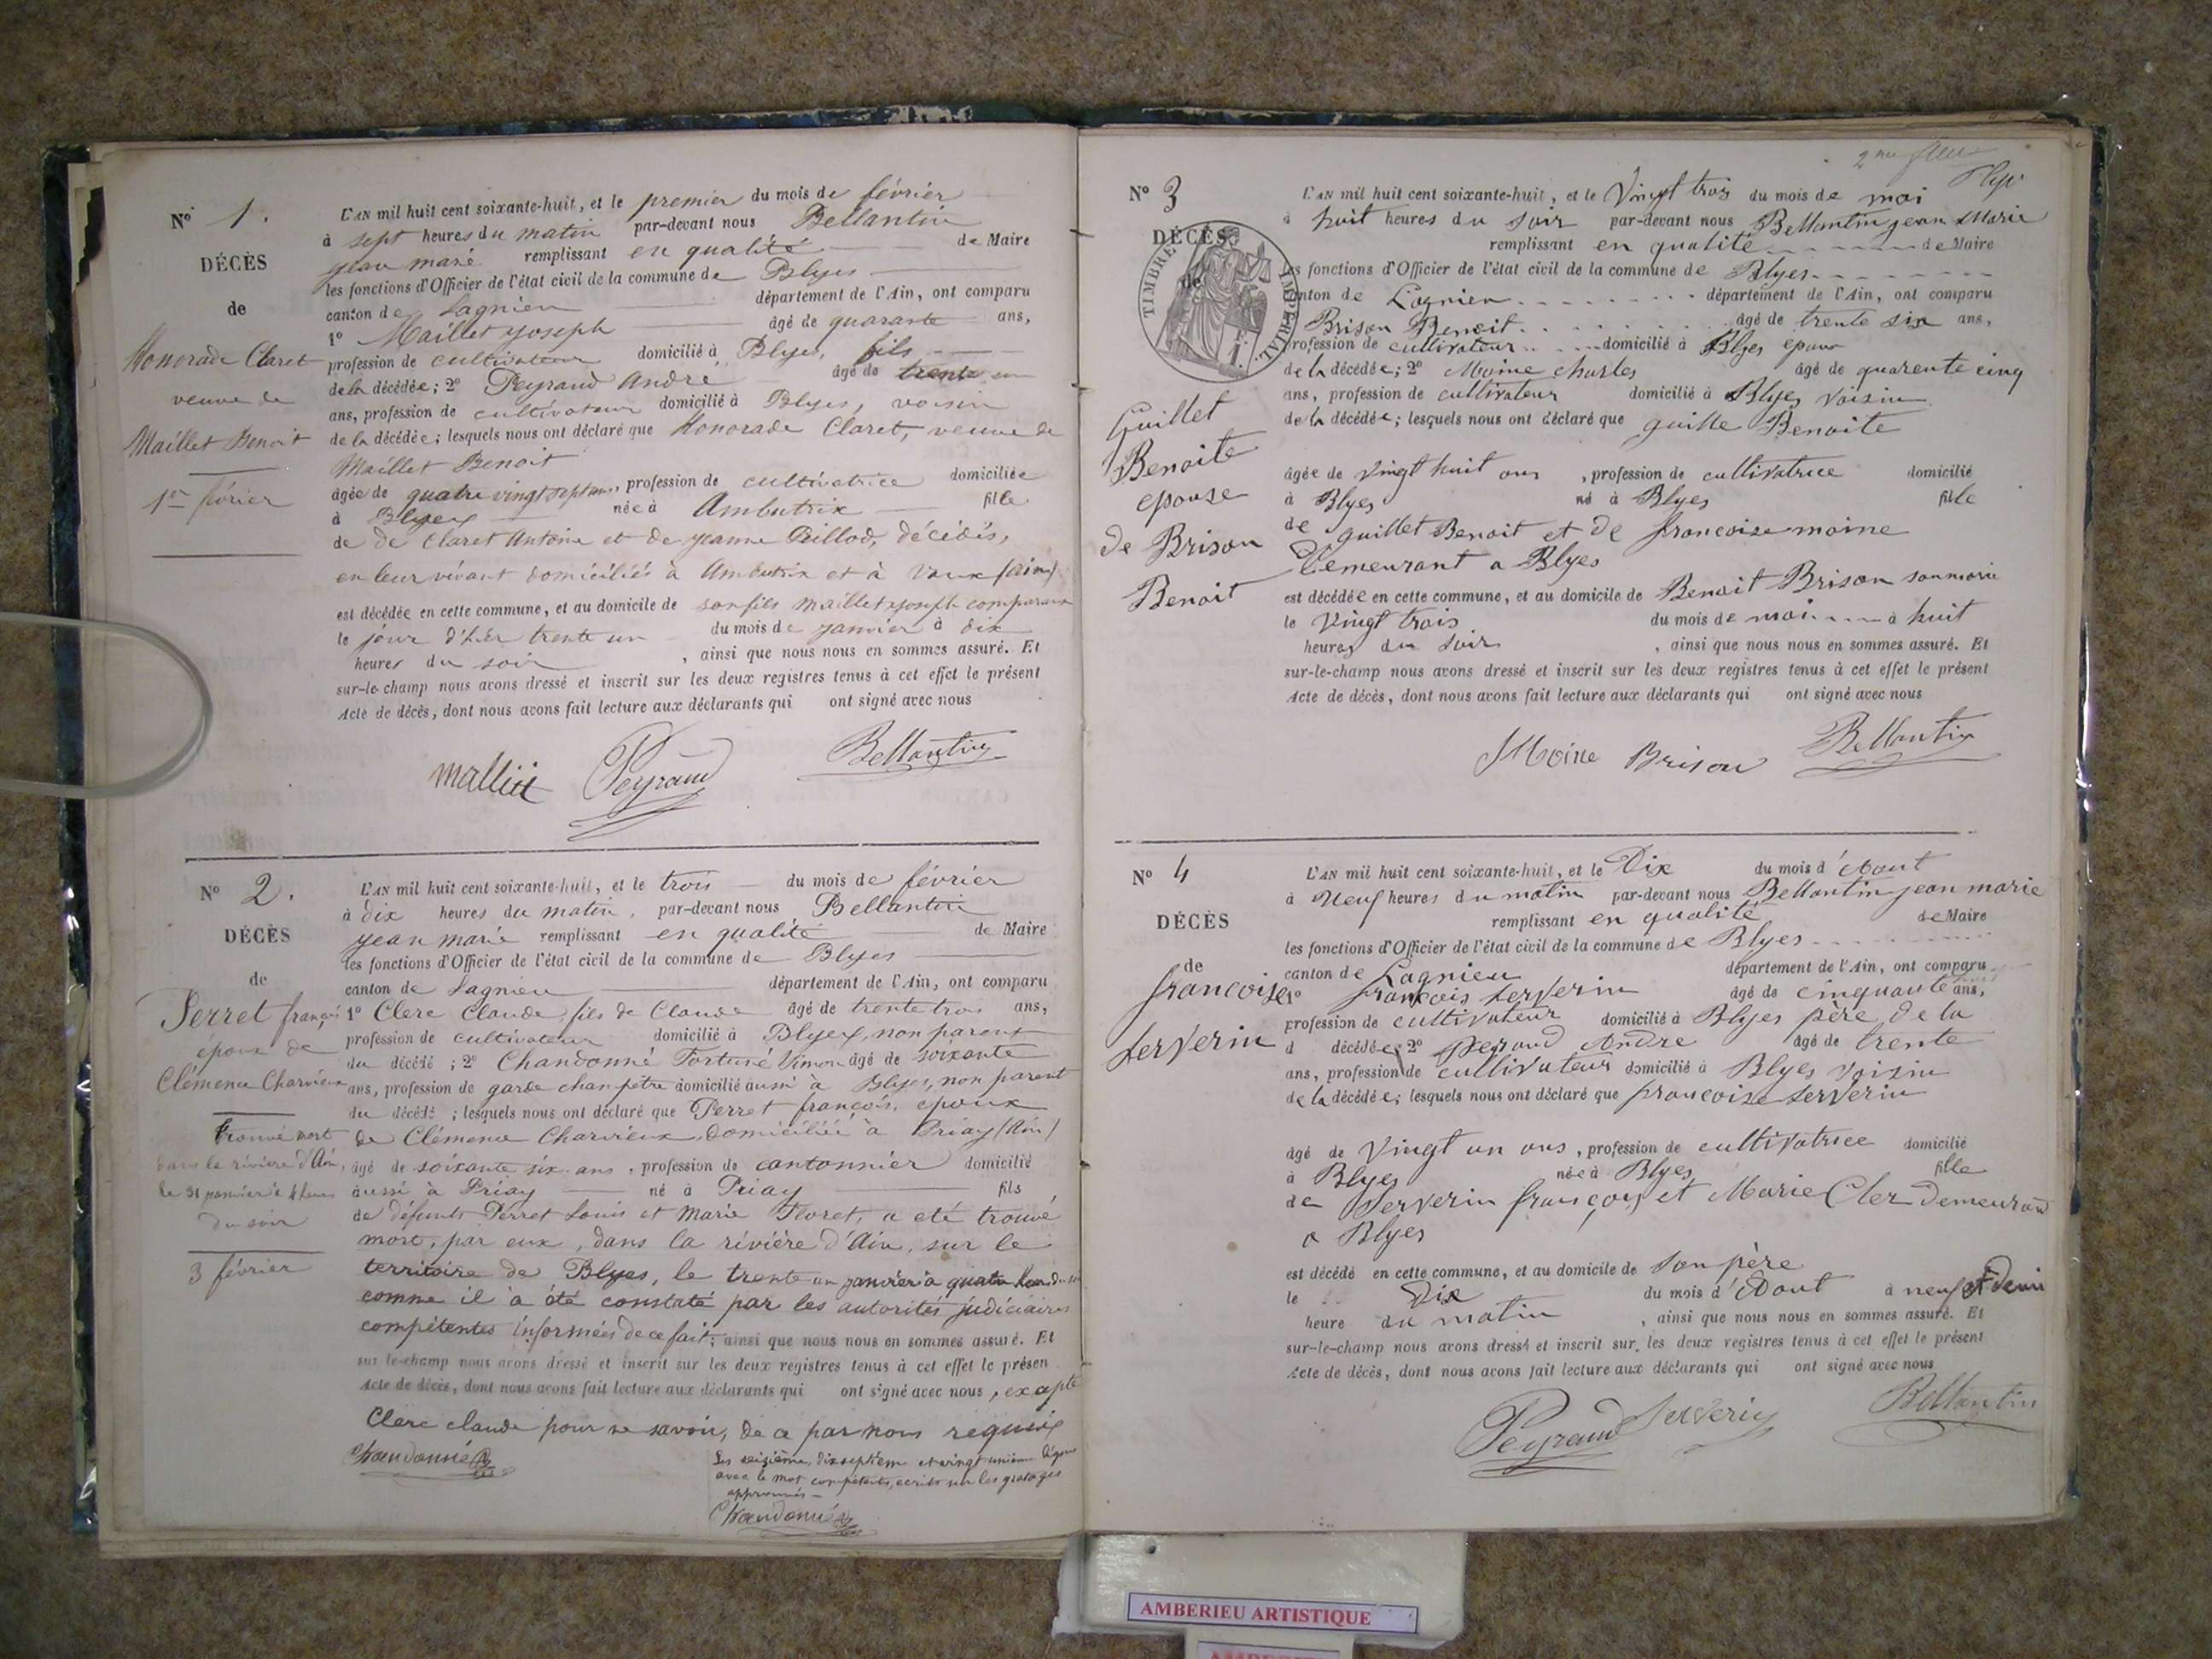 N° 1.
DÉCÈS
de
Honorade Claret
veuve de
Maillet Benoit
1er février
L'AN mil huit cent soixante-huit, et le premier du mois de février
à sept heures du matin par-devant nous Bellantin
jean marie remplissant en qualité de Maire
les fonctions d'Officier de l'état civil de la commune de Blyes
canton de Lagnieu département de l'Ain, ont comparu
1° Maillet Joseph âgé de quarante ans,
profession de cultivateur domicilié à Blyes, fils
de la décédée; 2° Peyraud André âgé de trente un
ans, profession de cultivateur domicilié à Blyes, voisin
de la décédée; lesquels nous ont déclaré que Honorade Claret, veuve de
Maillet Benoit
âgée de quatre vingt sept ans, profession de cultivatrice domiciliée
à Blyes née à Ambutrix fille
de de Claret Antoine et de jeanne Pillod, décédés,
en leur vivant domiciliés à Ambutrix et à Vaux (Ain)
est décédée en cette commune, et au domicile de son fils Maillet joseph comparant
le jour d'hier trente un du mois de janvier à dix
heures du soir, ainsi que nous nous en sommes assuré. Et
sur-le-champ nous avons dressé et inscrit sur les deux registres tenus à cet effet le présent
Acte de décès, dont nous avons fait lecture aux déclarants qui ont signé avec nous
Peyraud Bellantin
N° 2.
DÉCÈS
de
Perret françois
époux de
Clémence Charvieux
trouvé mort
dans la rivière d'Ain,
le 31 janvier à 4 heures
du soir
3 février
L'AN mil huit cent soixante-huit, et le trois du mois de février
à dix heures du matin, par-devant nous Bellantin
jean marie remplissant en qualité de Maire
les fonctions d'Officier de l'état civil de la commune de Blyes
canton de Lagnieu département de l'Ain, ont comparu
1° Clerc Claude, fils de Claude âgé de trente trois ans,
profession de cultivateur domicilié à Blyes, non parent
du décédé; 2° Chandonné Fortuné Simon âgé de soixante
ans, profession de garde champêtre domicilié aussi à Blyes, non parent
du décédé; lesquels nous ont déclaré que Perret françois, époux
de Clémence Charvieux, domicilié à Priay (Ain)
âgé de soixante six ans, profession de cantonnier domicilié
aussi à Priay né à Priay fils
de défunts Perret Louis et Marie Floret, a été trouvé
mort, par eux, dans la rivière d'Ain, sur le
territoire de Blyes, le trente un janvier à quatre heures du soir
comme il a été constaté par les autorités judiciaires
compétentes informées de ce fait; ainsi que nous nous en sommes assuré. Et
sur-le-champ nous avons dressé et inscrit sur les deux registres tenus à cet effet le présen
Acte de décès, dont nous avons fait lecture aux déclarants qui ont signé avec nous, excepté
Clerc claude pour ne savoir, de ce par nous requis
Chandonné
Les seizième, dix septième et vingt unième lignes
avec le mot compétentes, écrits sur les gratages
approuvés
Chandonné
2me
N° 3
DÉCÈS
de
TIMBRE IMPERIAL.
Guillet
Benoite
epouse
de Brison
Benoit
L'AN mil huit cent soixante-huit, et le Vingt trois du mois de mai
à huit heures du soir par-devant nous Bellantin jean Marie
remplissant en qualité de Maire
les fonctions d'Officier de l'état civil de la commune de Blyes
canton de Lagnieu département de l'Ain, ont comparu
Brison Benoit âgé de trente six ans,
profession de cultivateur domicilié à Blyes epoux
de la décédée; 2° Moine charles âgé de quarente cinq
ans, profession de cultivateur domicilié à Blyes Voisin
de la décédée; lesquels nous ont déclaré que guille Benoite
âgée de Vingt huit ans, profession de cultivatrice domicilié
à Blyes né à Blyes fille
de guillet Benoit et de francoise moine
Demeurant a Blyes
est décédée en cette commune, et au domicile de Benoit Brison son marie
le Vingt trois du mois de mai à huit
heures du soir, ainsi que nous nous en sommes assuré. Et
sur-le-champ nous avons dressé et inscrit sur les deux registres tenus à cet effet le présent
Acte de décès, dont nous avons fait lecture aux déclarants qui ont signé avec nous
Moine Brison Bellantin
N° 4
DÉCÈS
de
francoise
serverin
L'AN mil huit cent soixante-huit, et le Dix du mois d'Aout
à Neuf heures du matin par-devant nous Bellantin jean marie
remplissant en qualité de Maire
les fonctions d'Officier de l'état civil de la commune de Blyes
canton de Lagnieu département de l'Ain, ont comparu
1° francois serverin âgé de cinquante ans,
profession de cultivateur domicilié à Blyes père de la
d décédée; 2° Peyraud André âgé de trente
ans, profession de cultivateur domicilié à Blyes Voisin
de la décédée; lesquels nous ont déclaré que francoise serverin
âgé de Vingt un ans, profession de cultivatrice domicilié
à Blyes née à Blyes fille
de serverin françois et Marie Cler Demeurand
a Blyes
est décédé en cette commune, et au domicile de son père
le Dix du mois d'Aout à neuf et Demi
heure du matin, ainsi que nous nous en sommes assuré. Et
sur-le-champ nous avons dressé et inscrit sur les deux registres tenus à cet effet le présent
Acte de décès, dont nous avons fait lecture aux déclarants qui ont signé avec nous
Peyraud Serverin Bellantin
AMBERIEU ARTISTIQUE